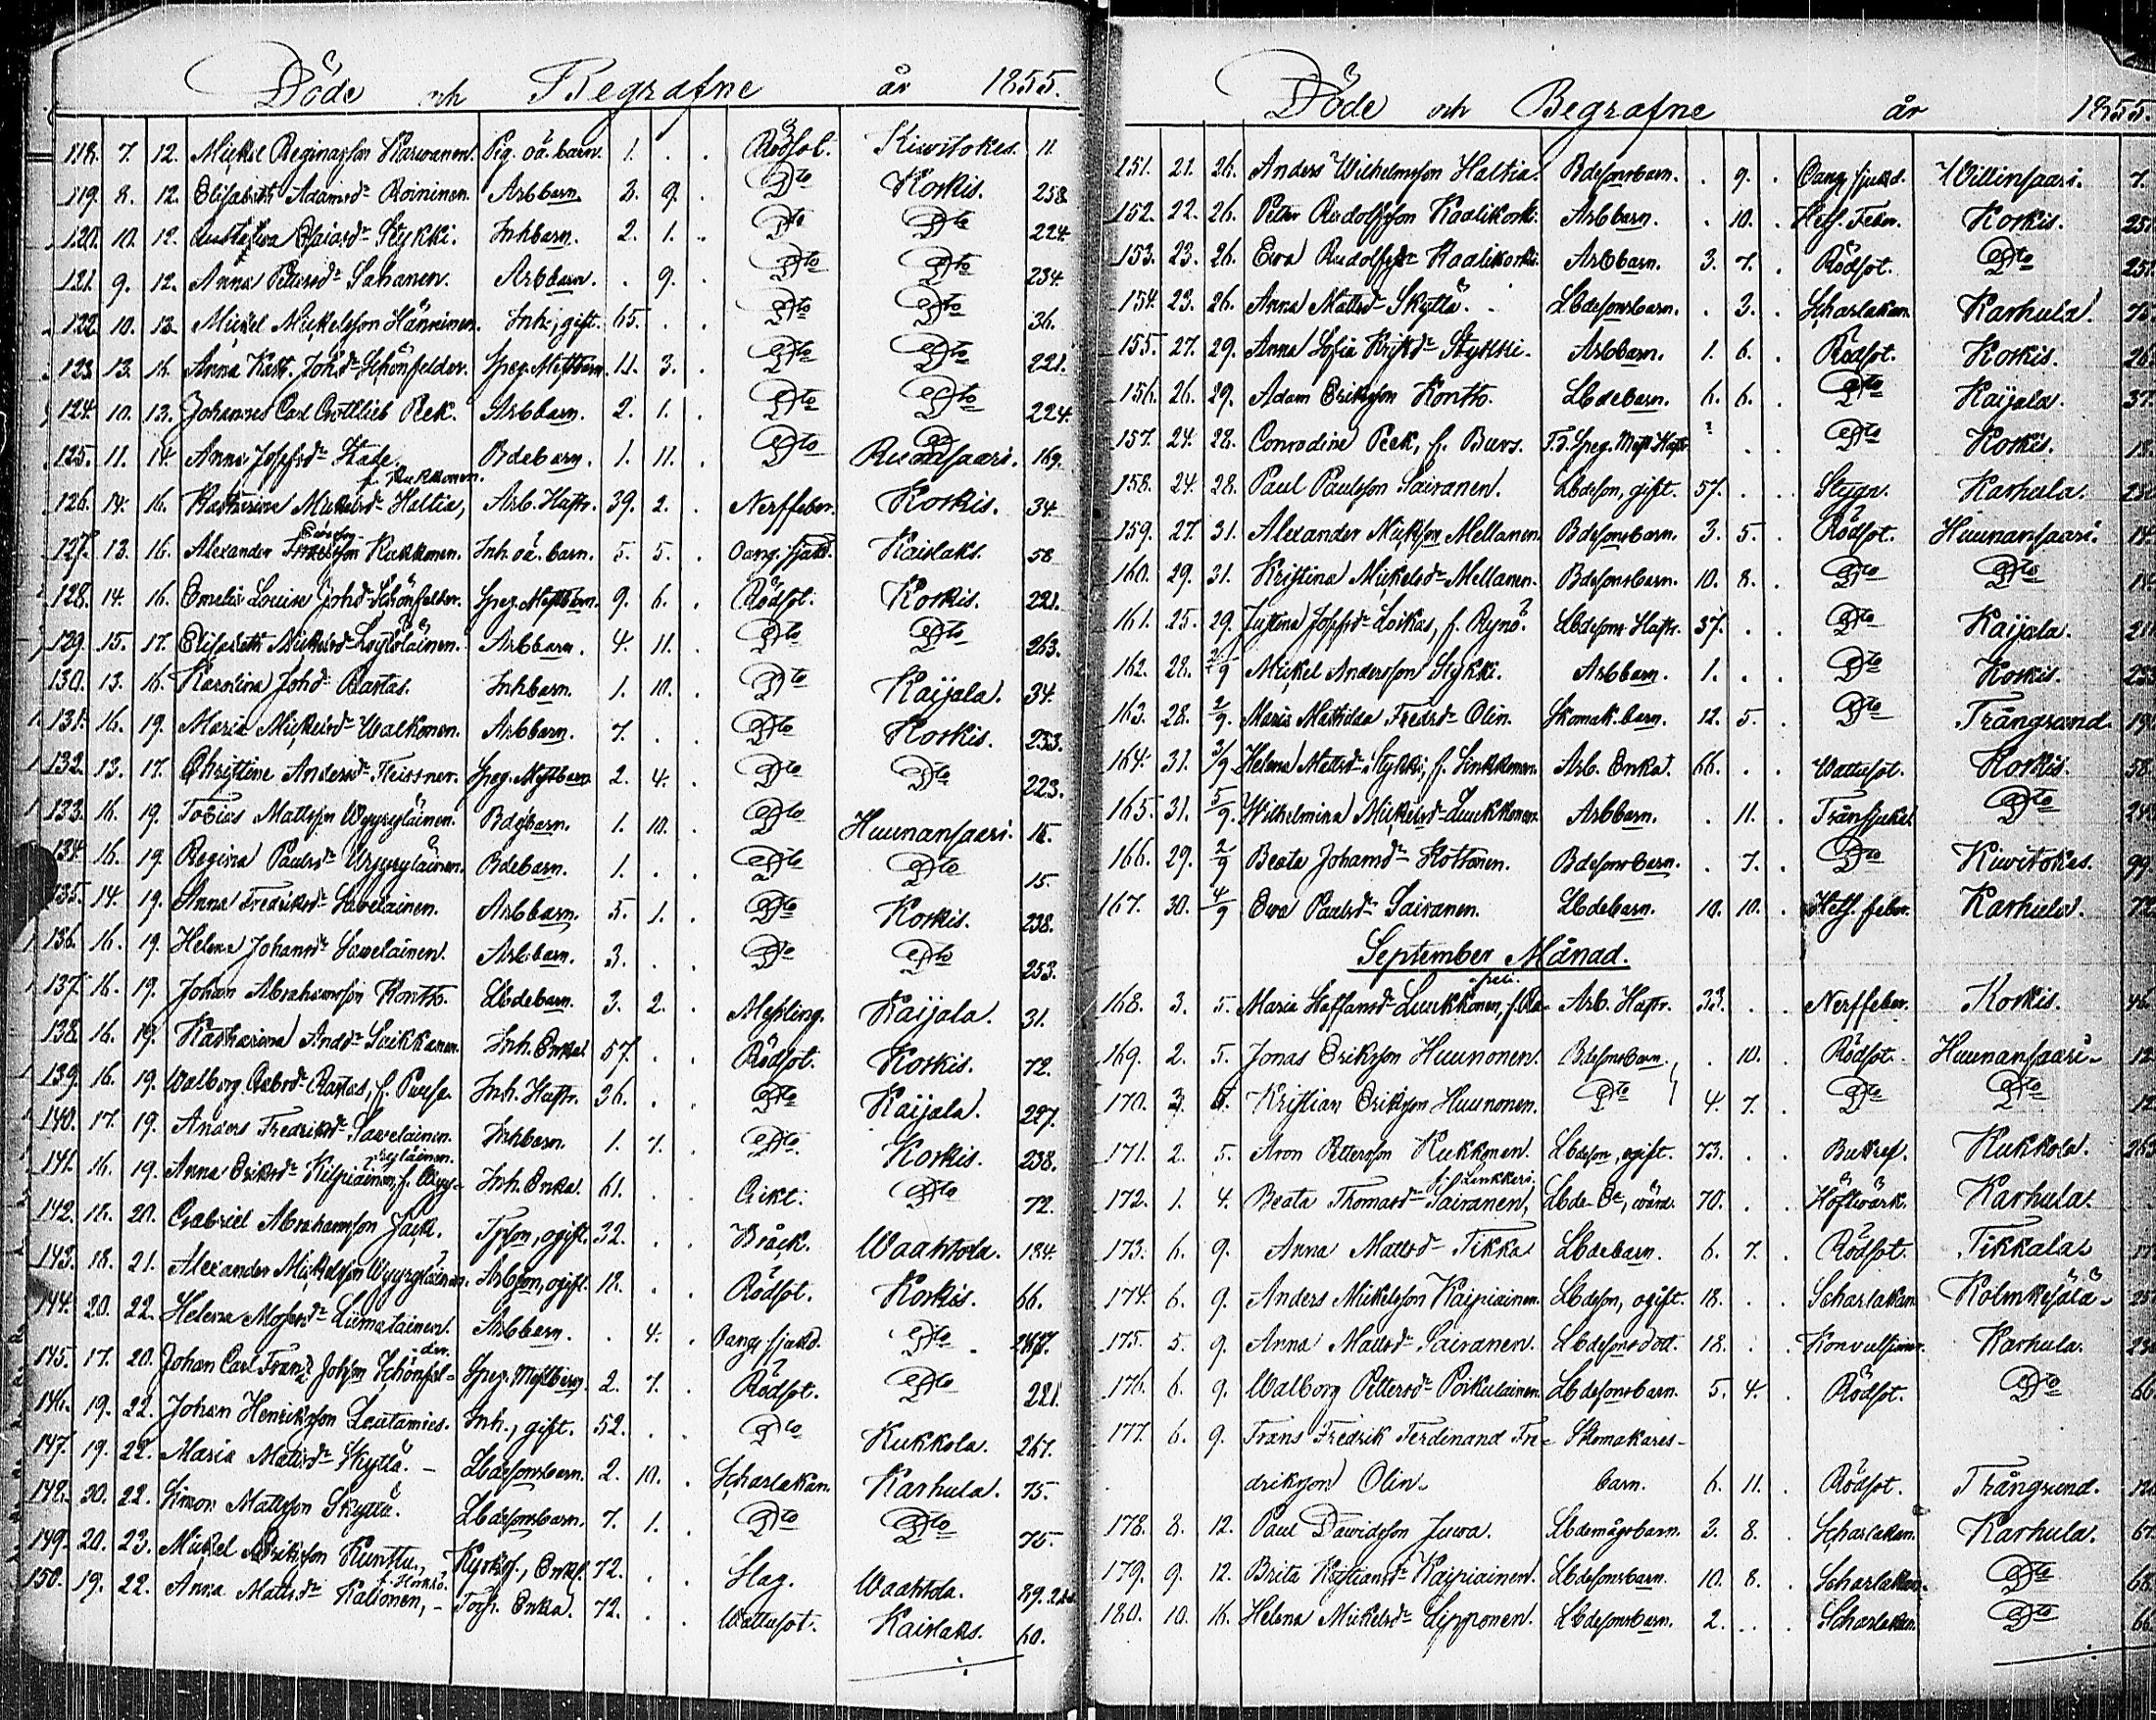 Döde och Begrafne år 1855.
118. 7. 12. Mickel Reginasson Karvanen. Pig. oä. barn. 1. . . Rödsot. Kiwitokes. 11
119. 8. 12. Elisabeth Adamsdr Roininen. Arbbarn. 3. 9. . Dto Koskis. 258
120. 10. 12. Esaiasdr Stykki. Inhbarn. 2. 1. . Dto Dto 224.
121. 9. 12. Anna Pettersdr Sahanen. Arbbarn. . 9. . Dto Dto 234.
122. 10. 13. Mickel Mickelsson Hänninen. Inh., gift. 65. . . Dto Dto 36.
123. 13. 16. Anna Katr. Johsdr Schönfelder. Speg. Mestbarn. 11. 3. . Dto Dto 221.
124. 10. 13. Johannes Carl Gottlieb Pek. Arbbarn. 2. 1. . Dto Dto 224.
125. 11. 14. Anna Josefsdr Bdebarn. 1. 11. . Dto 169.
f. Kukkonen.
126. 14. 16. Katharina Mickelsdr Haltia, Arb. Hustr. 39. 2. . Nerffeber. Koskis. 34.
127. 13. 16. Alexander Kukkonen. Inh. oä. barn. 5. 5. . Oang. sjukd. Kaislaks. 58
128. 14. 16. Emelie Louise Johsdr Schönfelder. Speg. Mestbarn. 9. 6. . Rödsot. Koskis. 221.
129. 15. 17. Elisabeth Mickelsdr Arbbarn. 4. 11. . Dto Dto 263.
130. 13. 16. Karolina Johsdr Rastas. Inhbarn. 1. 10. . Dto Kaijala. 34.
131. 16. 19. Maria Mickelsdr Walkonen. Arbbarn. 7. . . Dto Koskis. 233.
132. 13. 17. Christine Andersdr Fleissner. Speg. Mestbarn. 2. 4. . Dto Dto 223.
133. 16. 19. Tobias Mattsson Wyyryläinen. Bdebarn. 1. 10. . Dto Huunansaari. 15.
134. 16. 19. Regina Paulsdr Wyyryläinen. Bdebarn. 1. . . Dto Dto 15.
135. 14. 19. Anna Fredriksdr Sawelainen. Arbbarn. 5. 1. . Dto Koskis. 238.
136. 16. 19. Helena Johansdr Sawelainen. Arbbarn. 3. . . Dto Dto 253.
137. 16. 19. Johan Abrahamsson Kontto. Lbdebarn. 3. 2. . Messling. Kaijala. 31.
138. 16. 19. Katharina Andsdr Saikkanen. Inh. Enka. 57. . . Rödsot. Koskis. 72.
139. 16. 19. Walborg Gabrdr Rastas, f. Inh. Hustr. 36. . . Dto Kaijala. 227.
140. 17. 19. Anders Fredriksn Sawelainen. Inhbarn. 1. 7. . Dto Koskis. 238.
ryläinen.
141. 16. 19. Anna Eriksdr Kilpiäinen, f. Wyy- Inh. Enka. 61. . . Gikt. Dto 72.
142. 18. 20. Gabriel Abrahamsson Jack. Tpson, ogift. 32. . . Bråck. Waahtola. 184.
143. 18. 21. Alexander Mickelsson Wyyryläinen. Arbson, ogift. 18. . . Rödsot. Koskis. 66.
144. 20. 22. Helena Mosesdr Liimatainen. Arbbarn. . 4. . Oang. sjukd. Dto
der.
145. 17. 20. Johan Carl Franz Johsson Schönfel- Speg. Mestbarn. 2. 7. . Rödsot. Dto 221.
146. 19. 22. Johan Henriksson Lautamies. Inh., gift. 52. . . Dto Kukkola. 267.
147. 19. 22. Maria Mattsdr Skyttä. Lbdesonsbarn. 2. 10. . Scharlakan. Karhula. 75.
148. 20. 22. Simon Mattsson Skyttä. Lbdesonsbarn. 7. 1. . Dto Dto 75.
149. 20. 23. Mickel Eriksson Kunttu, Enkl. 72. . . Slag. Waahtola. 89.
150. 19. 22. Anna Mattsdr Kalionen, Torp. Enka. 72. . . Wattusot. Kaislaks. 60.
Döde och Begrafne år 1855.
151. 21. 26. Anders Wilhelmsson Haltia. Bdesonsbarn. . 9. . Oang. sjukd. Willinsaari. 7.
152. 22. 26. Peter Rudolfsson Kaalikoski. Arbbarn. . 10. . Hets. Feber. Koskis.
153. 23. 26. Eva Rudolfsdr Kaalikoski. Arbbarn. 3. 7. . Rödsot. Dto
154. 23. 26. Anna Mattsdr Skyttä. Lbdesonsbarn. . 3. . Scharlakan Karhula.
155. 27. 29. Anna Sofia Eriksdr Stykki. Arbbarn. 1. 6. . Rödsot. Koskis.
156. 26. 29. Adam Eriksson Kontto. Lbdebarn. 6. 6. . Dto Kaijala.
157. 24. 28. Conradine Peek, f. Burs. F.d. Speg. Mest. Hustr. ? . . Dto Koskis.
158. 24. 28. Paul Paulsson Sairanen. Lbdeson, gift. 57. . . Stygn. Karhula.
159. 27. 31. Alexander Mickson Mellanen. Bdesonsbarn. 3. 5. . Rödsot. Huunansaari.
160. 29. 31. Kristina Mickelsdr Mellanen. Bdesonsbarn. 10. 8. . Dto Dto
161. 25. 29. Justina Josefsdr Loikas, f. Rynö. Lbdesons Hustr. 37. . . Dto Kaijala.
162. 28. 2/9 Mickel Andersson Stykki. Arbbarn. 1. . . Dto Koskis.
163. 28. 2/9. Maria Mathilda Fredrsdr Olin. Skomak. barn. 12. 5. . Dto Trångsund.
164. 31. 3/9 Helena Mattsdr Stykki, f. Sinkkonen. Arb. Enka. 66. . . Wattusot. Koskis.
165. 31. 5/9. Wilhelmina Mickelsdr Luukkonen. Arbbarn. . 11. . Trånsjukd. Dto
166. 29. 2/9 Beata Johansdr Hottonen. Bdesonsbarn. . 7. . Dto Kiwitokes.
167. 30. 4/9 Eva Paulsdr Sairanen. Lbdebarn. 10. 10. . Hets. feber. Karhula.
September Månad.
168. 3. 5. Maria Staffansdr Luukkonen, Arb. Hustr. 33. . . Nerffeber. Koskis.
169. 2. 5. Jonas Eriksson Huunonen. Bdesonsbarn. . 10. . Rödsot. Huunansaari.
170. 3. 5. Kristian Eriksson Huunonen. Dto 4. 7. . Dto Dto
171. 2. 5. Aron Pettersson Kukkonen. Lbdeson, ogift. 73. . . Bukref. Kukkola.
f. Linkkeri.
172. 1. 4. Beata Thomasdr Sairanen, 70. . . Höftwärk. Karhula.
173. 6. 9. Anna Mattsdr Tikka Lbdebarn. 6. 7. . Rödsot. Tikkala.
174. 6. 9. Anders Mickelsson Kaipiainen. Lbdeson, ogift. 18. . . Scharlakan Kolmikesälä.
175. 5. 9. Anna Mattsdr Sairanen. Lbdesonsdott. 18. . . Konvulsioner. Karhula.
176. 6. 9. Walborg Pettersdr Poikulainen. Lbdesonsbarn. 5. 4. . Rödsot. Dto
177. 6. 9. Frans Fredrik Ferdinand Fre- Skomakares-
driksson Olin. barn. 6. 11. . Rödsot. Trångsund.
178. 8. 12. Paul Dawidsson Juwa. Lbdemågsbarn. 3. 8. . Scharlakan. Karhula.
179. 9. 12. Brita Kristiansdr Kaipiainen. Lbdesonsbarn. 10. 8. . Scharlakan. Dto
180. 10. 16. Helena Mickelsdr Lipponen. Lbdesonsbarn. 2. . . Scharlakan. Dto